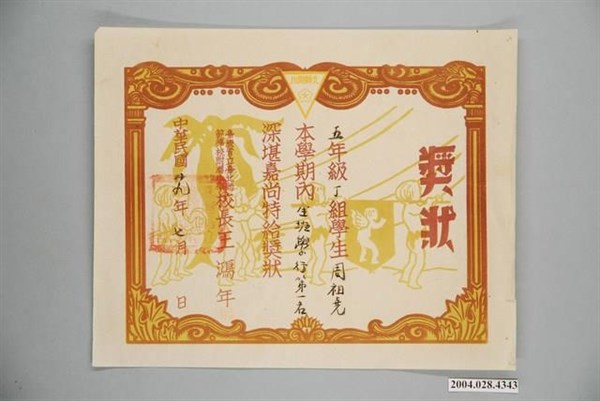 獎狀
五年級丁組學生周祖堯
本學期內全班學行第一名
深堪嘉尚特給獎狀
校長王鴻年
中華民國卅九年七月 日
2004.028.4343